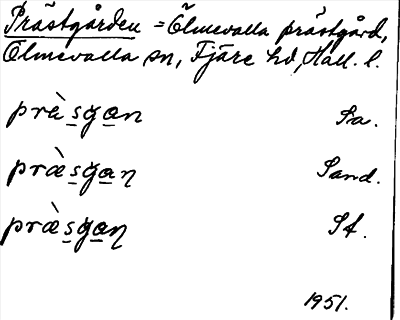 Prästgården = Ölmevalla prästgård,
Ölmevalla sn, Fjäre hd, Hall. l.
præ̀sgan Sa.
præ̀sgaɳ Sand.
præ̀sgaɳ St.
1951.